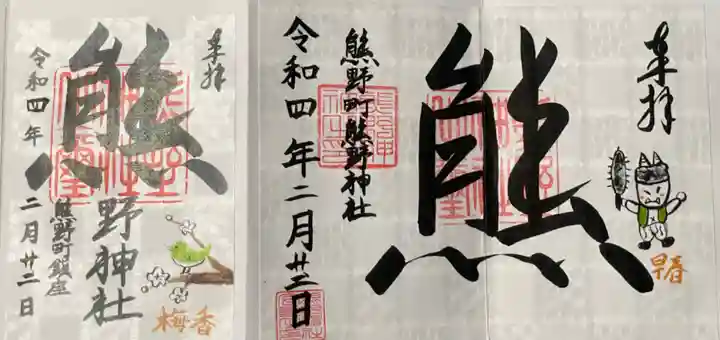 奉拝
熊野神社
熊野町鎮座
令和四年 二月廿二日
梅香
奉拝
熊
熊野町熊野神社
令和四年二月廿二日
早春